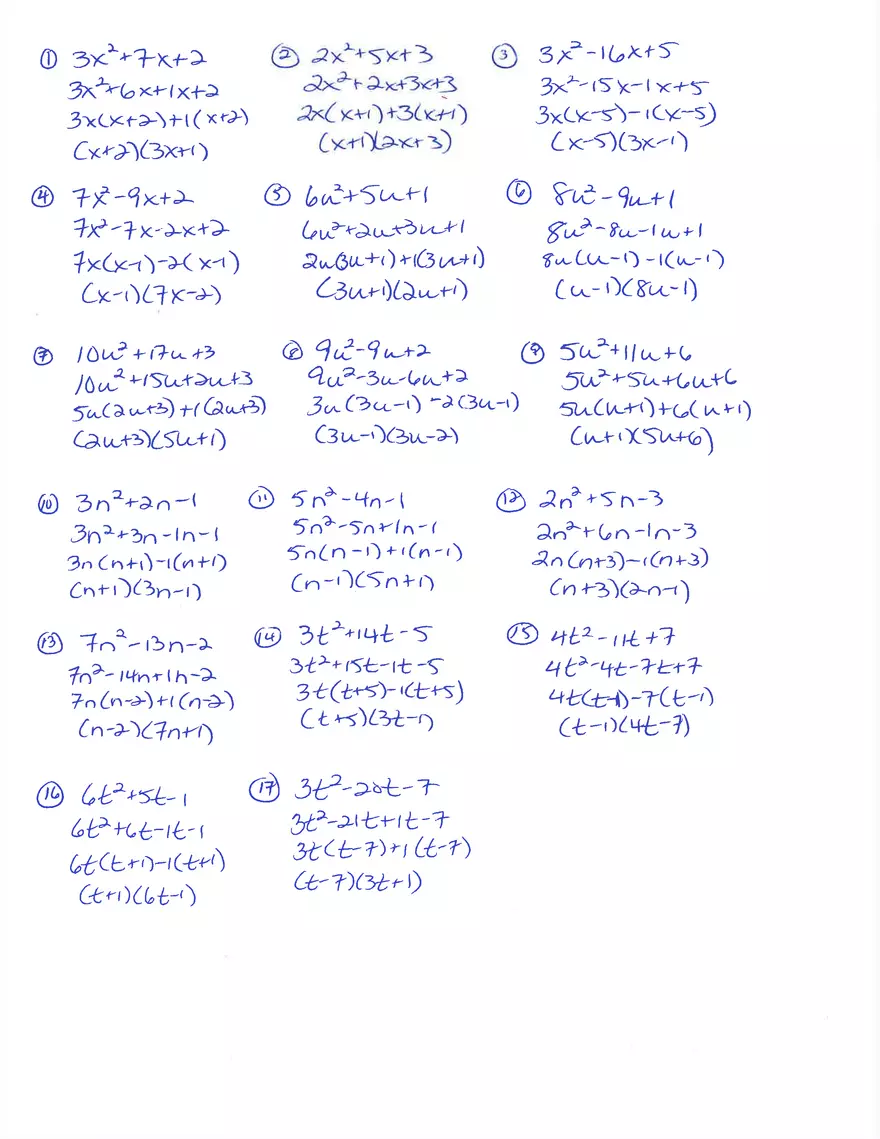 ① 3x²+7x+2
3x²+6x+1x+2
3x(x+2)+1(x+2)
(x+2)(3x+1)
② 2x²+5x+3
2x²+2x+3x+3
2x(x+1)+3(x+1)
(x+1)(2x+3)
③ 3x²-16x+5
3x²-15x-1x+5
3x(x-5)-1(x-5)
(x-5)(3x-1)
④ 7x²-9x+2
7x²-7x-2x+2
7x(x-1)-2(x-1)
(x-1)(7x-2)
⑤ 6u²+5u+1
6u²+2u+3u+1
2u(3u+1)+1(3u+1)
(3u+1)(2u+1)
⑥ 8u²-9u+1
8u²-8u-1u+1
8u(u-1)-1(u-1)
(u-1)(8u-1)
⑦ 10u²+17u+3
10u²+15u+2u+3
5u(2u+3)+1(2u+3)
(2u+3)(5u+1)
⑧ 9u²-9u+2
9u²-3u-6u+2
3u(3u-1)-2(3u-1)
(3u-1)(3u-2)
⑨ 5u²+11u+6
5u²+5u+6u+6
5u(u+1)+6(u+1)
(u+1)(5u+6)
⑩ 3n²+2n-1
3n²+3n-1n-1
3n(n+1)-1(n+1)
(n+1)(3n-1)
⑪ 5n²-4n-1
5n²-5n+1n-1
5n(n-1)+1(n-1)
(n-1)(5n+1)
⑫ 2n²+5n-3
2n²+6n-1n-3
2n(n+3)-1(n+3)
(n+3)(2n-1)
⑬ 7n²-13n-2
7n²-14n+1n-2
7n(n-2)+1(n-2)
(n-2)(7n+1)
⑭ 3t²+14t-5
3t²+15t-1t-5
3t(t+5)-1(t+5)
(t+5)(3t-1)
⑮ 4t²-11t+7
4t²-4t-7t+7
4t(t-1)-7(t-1)
(t-1)(4t-7)
⑯ 6t²+5t-1
6t²+6t-1t-1
6t(t+1)-1(t+1)
(t+1)(6t-1)
⑰ 3t²-20t-7
3t²-21t+1t-7
3t(t-7)+1(t-7)
(t-7)(3t+1)